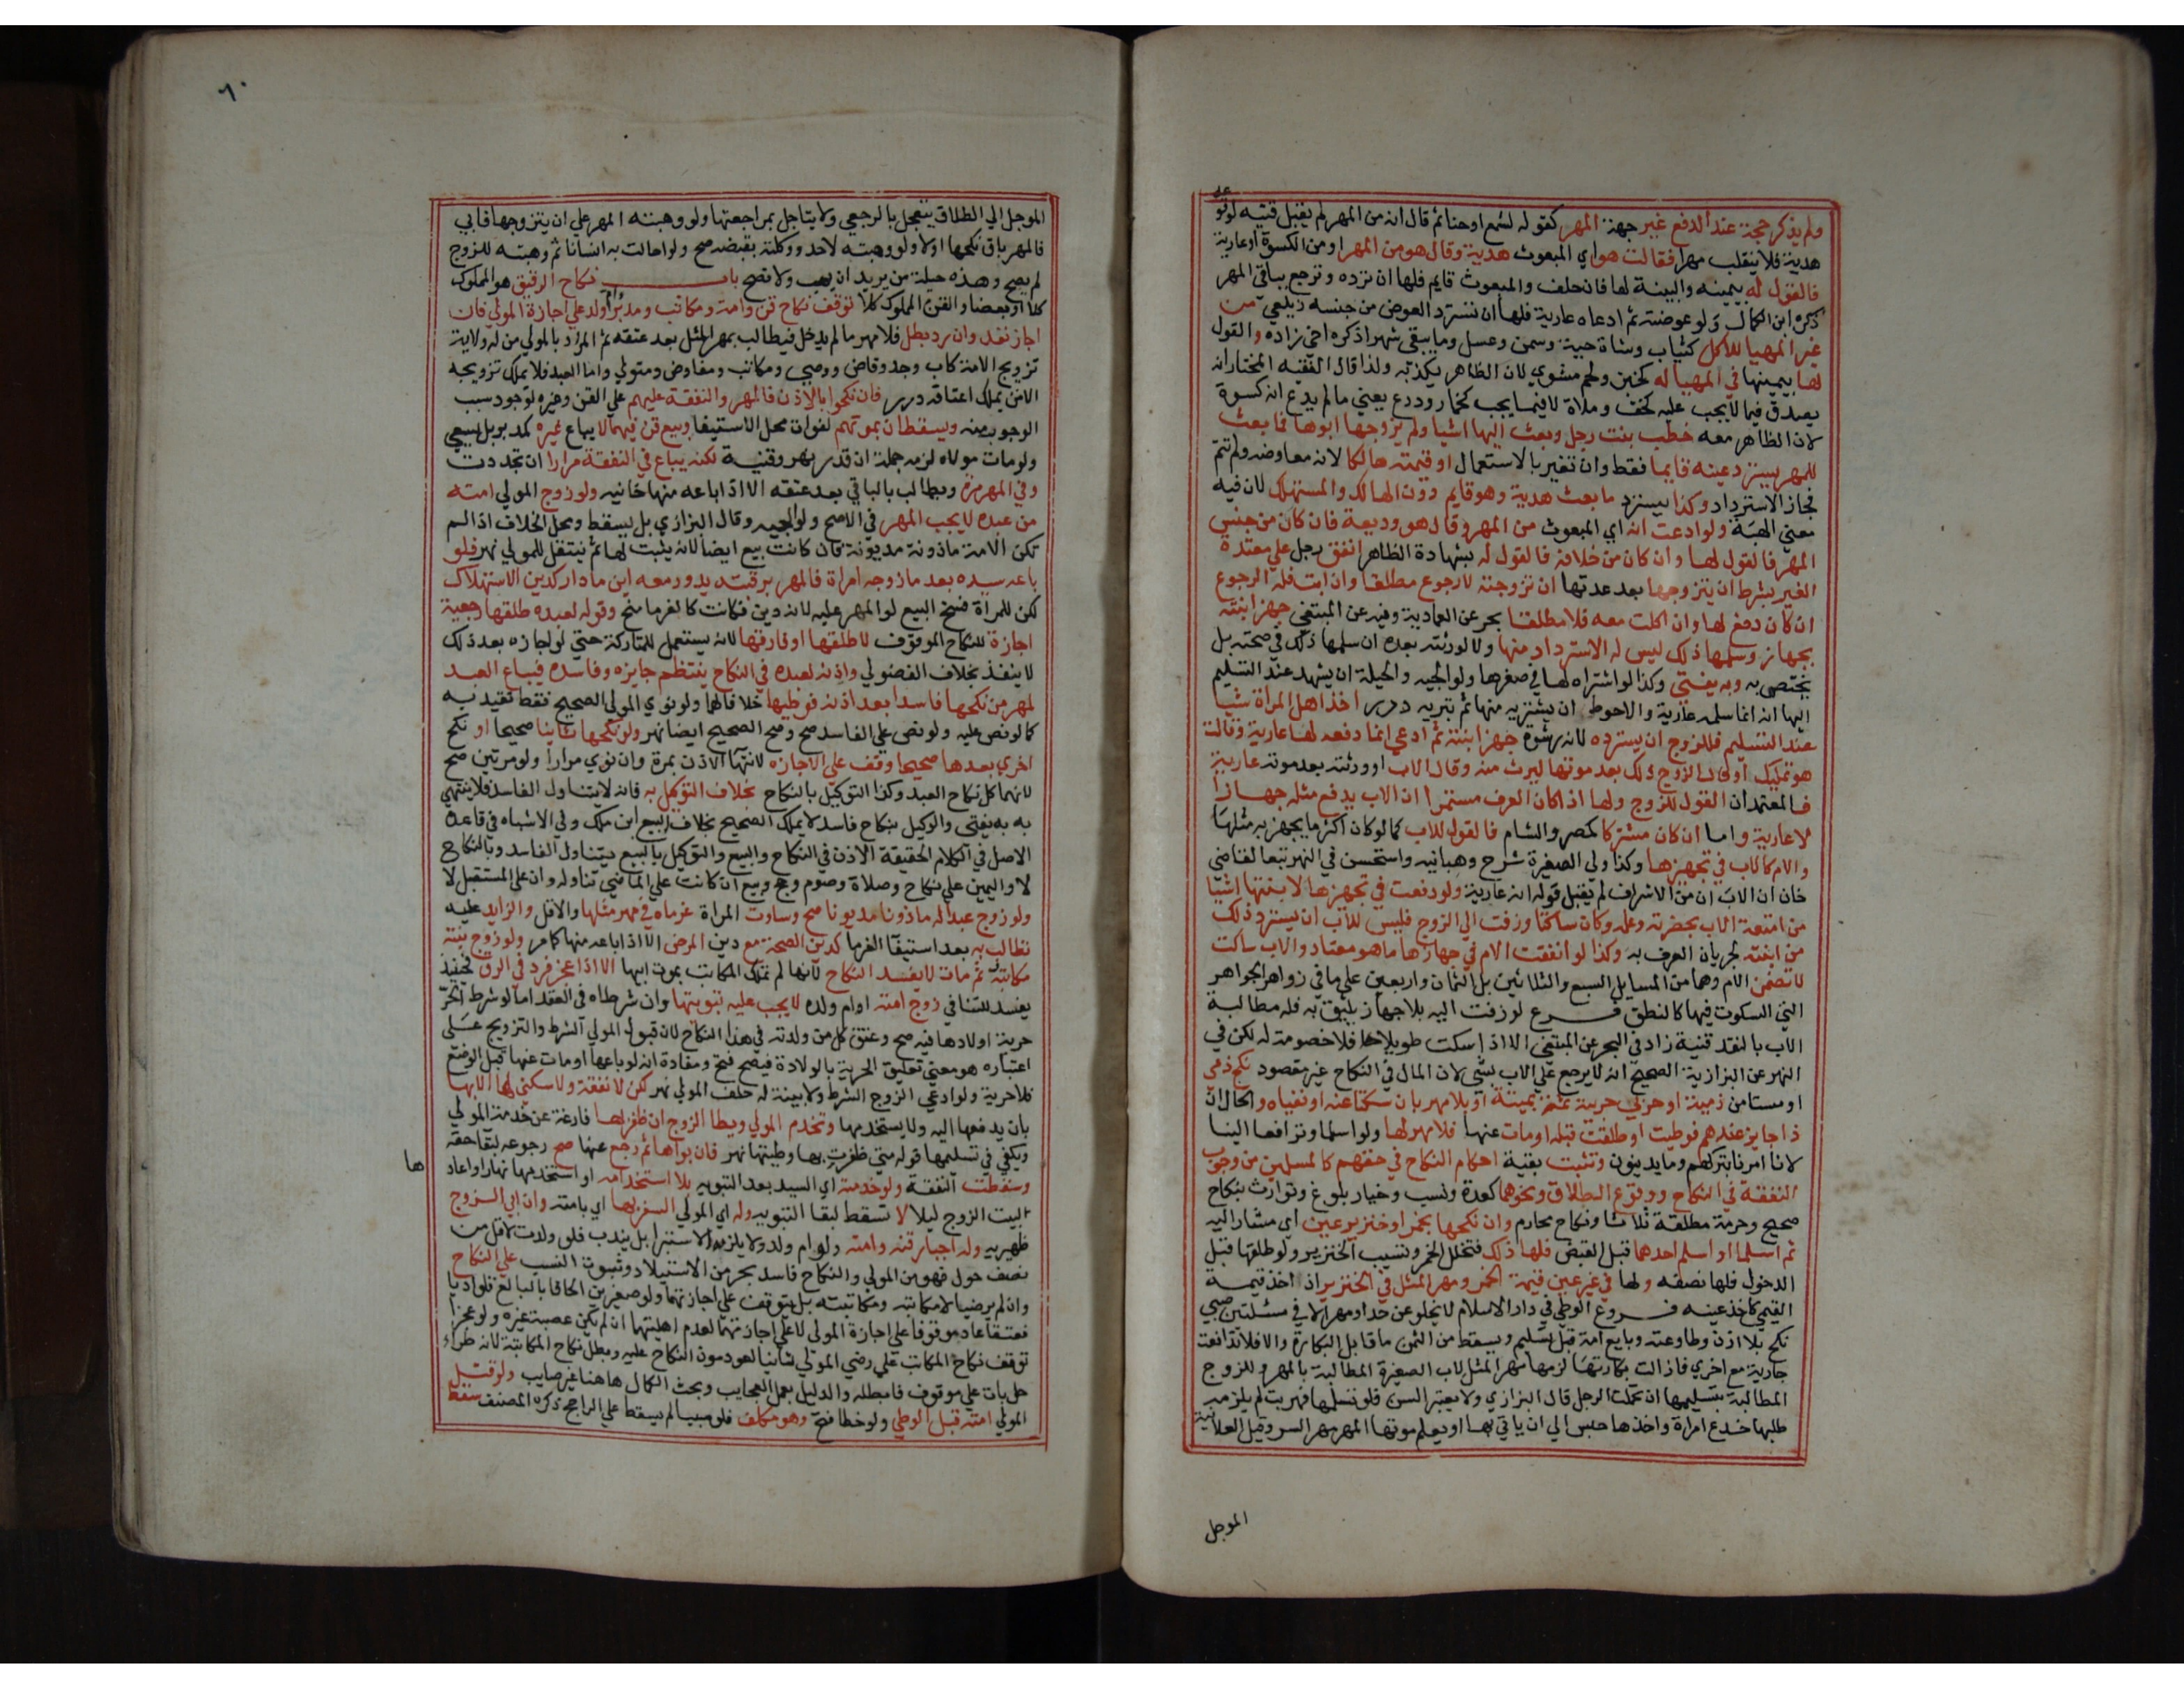 ولم يذكر جهة عند الدفع غير جهة المهر كقوله لشمع او حنا ثم قال انه من المهر لم يقبل قنيه لوقوعه
هدية فلا ينقلب مهرا فقالت هو اي المبعوث هدية وقال هو من المهر او من الكسوة او عارية
فالقول له بيمينه والبينة لها فان حلف والمبعوث قايم فلها ان ترده وترجع بباقي المهر
ذكره ابن الكمال ولو عوضته ثم ادعاه عارية فلها ان تسترد العوض من جنسه زيلعي من
غير المهيا للاكل كثياب وشاة حية وسمن وعسل وما يبقي شهرا ذكره اخي زاده والقول
لها بيمينها في المهيا له كخبز ولحم مشوي لان الظاهر يكذبه ولذا قال الفقيه المختار انه
يصدق فيما لا يجب عليه كخف وملاة لا فيما يجب كخمار ودرع يعني ما لم يدع انه كسوة
لان الظاهر معه خطب بنت رجل وبعث اليها اشيا ولم يزوجها ابوها فما بعث
للمهر يسترد عينه قايما فقط وان تغير بالاستعمال او قيمته هالكا لانه معاوضه ولم تتم
فجاز الاسترداد وكذا يسترد ما بعث هدية وهو قايم دون الهالك والمستهلك لان فيه
معني الهبة ولو ادعت انه اي المبعوث من المهر وقال هو وديعة فان كان من جنس
المهر فالقول لها وان كان من خلافه فالقول له بشهادة الظاهر انفق رجل علي معتدة
الغير بشرط ان يتزوجها بعد عدتها ان تزوجته لا رجوع مطلقا وان ابت فله الرجوع
ان كان دفع لها وان اكلت معه فلا مطلقا بحر عن العمادية وفيه عن المبتغي جهز ابنته
بجهاز وسلمها ذلك ليس له الاسترداد منها ولا لورثته بعده ان سلمها ذلك في صحته بل
تختص به وبه يفتي وكذا لو اشتراه لها في صغرها ولوالجيه والحيلة ان يشهد عند التسليم
اليها انه انما سلمه عارية والاحوط ان يشتريه منها ثم تبريه درر اخذ اهل المراة شيا
عند التسليم فللزوج ان يسترده لانه رشوة جهز ابنته ثم ادعي انما دفعه لها عارية وقالت
هو تمليك او قال الزوج ذلك بعد موتها ليرث منه وقال الاب او ورثته بعد موته عارية
فالمعتمد ان القول للزوج ولها اذا كان العرف مستمرا ان الاب يدفع مثله جهازا
لا عارية واما ان كان مشتركا كمصر والشام فالقول للاب كما لو كان اكثر ما يجهز به مثلها
والام كالاب في تجهيزها وكذا ولي الصغيرة شرح وهبانيه واستحسن في النهر تبعا لقاضي
خان ان الاب ان من الاشراف لم يقبل قوله انه عارية ولو دفعت في تجهيزها لابنتها اشيا
من امتعة الاب بحضرته وعلمه وكان ساكتا وزفت الي الزوج فليس للاب ان يسترد ذلك
من ابنته لجريان العرف به وكذا لو انفقت الام في جهازها ما هو معتاد والاب ساكت
لا تضمن الام وهما من المسايل السبع والثلاثين بل الثمان واربعين علي ما في زواهر الجواهر
التي السكوت فيها كالنطق فرع لو زفت اليه بلا جهاز يليق به فله مطالبة
الاب بالنقد قنية زاد في البحر عن المبتغي الا اذا سكت طويلا فلا خصومة له لكن في
النهر عن البزازية الصحيح انه لا يرجع علي الاب بشي لان المال في النكاح غير مقصود نكح ذمي
او مستامن ذمية او حربي حربية ثمة بميتة او بلا مهر بان سكتا عنه او نفياه والحال ان
ذا جايز عندهم فوطيت او طلقت قبله او مات عنها فلا مهر لها ولو اسلما وترافعا الينا
لانا امرنا بتركهم وما يدينون وتثبت بقية احكام النكاح في حقهم كالمسلمين من وجوب
النفقة في النكاح ووقوع الطلاق ونحوهما كعدة ونسب وخيار بلوغ وتوارث بنكاح
صحيح وحرمة مطلقة ثلاثا ونكاح محارم وان نكحها بخمر او خنزير عين اي مشار اليه
ثم اسلما او اسلم احدهما قبل القبض فلها ذلك فتخلل الخمر وتسيب الخنزير ولو طلقها قبل
الدخول فلها نصفه ولها في غير عين قيمة الخمر ومهر المثل في الخنزير اذ اخذ قيمة
القيمي كاخذ عينه فروع الوطي في دار الاسلام لا يخلو عن حد او مهر الا في مسئلتين صبي
نكح بلا اذن وطاوعته وبايع امة قبل تسليم ويسقط من الثمن ما قابل البكارة والا فلا تدافعت
جارية مع اخري فازالت بكارتها لزمها مهر المثل لاب الصغيرة المطالبة بالمهر وللزوج
المطالبة بتسليمها ان تحملت الرجل قال البزازي ولا يعتبر السن فلو تسلمها فهربت لم يلزمه
طلبها خدع امراة واخذها حبس الي ان ياتي بها او يعلم موتها المهر مهر السر وقيل العلانية
الموجل
٦٠
الموجل الي الطلاق يتعجل بالرجعي ولا يتاجل بمراجعتها ولو وهبته المهر علي ان يتزوجها فابي
فالمهر باق نكحها او لا ولو وهبته لاحد ووكلته بقبضه صح ولو احالت به انسانا ثم وهبته للزوج
لم يصح وهذه حيلة من يريد ان يهب ولا تصح باب نكاح الرقيق هو المملوك
كلا او بعضا والقن المملوك كلا توقف نكاح قن وامة ومكاتب ومدبر وام ولد علي اجازة المولي فان
اجاز نفذ وان رد بطل فلا مهر ما لم يدخل فيطالب بمهر المثل بعد عتقه ثم المراد بالمولي من له ولاية
تزويج الامة كاب وجد وقاض ووصي ومكاتب ومفاوض ومتولي واما العبد فلا يملك تزويجه
الا من يملك اعتاقه درر فان نكحوا بالاذن فالمهر والنفقة عليهم علي القن وغيره لوجود سبب
الوجوب منه ويسقطان بموتهم لفوات محل الاستيفا وبيع قن فيهما لا يباع غيره كمدبر بل يسعي
ولو مات مولاه لزمه جملة ان قدر نهر وقنية لكنه يباع في النفقة مرارا ان تجددت
وفي المهر مرة ويطالب بالباقي بعد عتقه الا اذا باعه منها خانيه ولو زوج المولي امته
من عبده لا يجب المهر في الاصح ولوالجيه وقال البزازي بل يسقط ومحل الخلاف اذا لم
تكن الامة ماذونة مديونة فان كانت بيع ايضا لانه يثبت لها ثم ينتقل للمولي نهر فلو
باعه سيده بعد ما زوجه امراة فالمهر برقبته يدور معه اين ما دار كدين الاستهلاك
لكن للمراة فسخ البيع لو المهر عليه لانه دين فكانت كالغرما منح وقوله لعبده طلقها رجعية
اجازة للنكاح الموقوف لا طلقها او فارقها لانه يستعمل للمتاركة حتي لو اجازه بعد ذلك
لا ينفذ بخلاف الفضولي واذنه لعبده في النكاح ينتظم جايزه وفاسده فيباع العبد
لمهر من نكحها فاسدا بعد اذنه فوطيها خلافا لهما ولو نوي المولي الصحيح فقط تقيد به
كما لو نص عليه ولو نص علي الفاسد صح وصح الصحيح ايضا نهر ولو نكحها ثانيا صحيحا او نكح
اخري بعدها صحيحا وقف علي الاجازه لانتها الاذن بمرة وان نوي مرارا ولو مرتين صح
لانهما كل نكاح العبد وكذا التوكيل بالنكاح بخلاف التوكيل به فانه لا يتناول الفاسد فلا ينتهي
به به يفتي والوكيل بنكاح فاسد لا يملك الصحيح بخلاف البيع ابن ملك وفي الاشباه في قاعدة
الاصل في الكلام الحقيقة الاذن في النكاح والبيع والتوكيل بالبيع يتناول الفاسد وبالنكاح
لا واليمين علي نكاح وصلاة وصوم وحج وبيع ان كانت علي الماضي تناوله وان علي المستقبل لا
ولو زوج عبدا له ماذونا مديونا صح وساوت المراة غرماه في مهر مثلها والاقل والزايد عليه
تطالب به بعد استيفا الغرما كدين الصحة مع دين المرض الا اذا باعه منها كما مر ولو زوج بنته
مكاتبه ثم مات لا يفسد النكاح لانها لم تملك المكاتب بموت ابيها الا اذا عجز فرد في الرق فحينئذ
يفسد للتنافي زوج امته او ام ولده لا يجب عليه تبويتها وان شرطاه في العقد اما لو شرط الحر
حرية اولادها فيه صح وعتق كل من ولدته في هذا النكاح لان قبول المولي الشرط والتزويج علي
اعتباره هو معني تعليق الحرية بالولادة فيصح فتح ومفادة انه لو باعها او مات عنها قبل الوضع
فلا حرية ولو ادعي الزوج الشرط ولا بينة له حلف المولي نهر لكن لا نفقة ولا سكني لها الا بها
بان يدفعها اليه ولا يستخدمها وتخدم المولي ويطا الزوج ان ظفر بها فارغة عن خدمة المولي
ويكفي في تسليمها قوله متي ظفرت بها وطيتها نهر فان بواها ثم رجع عنها صح رجوعه لبقا حقه
وسقطت النفقة ولو خدمته اي السيد بعد التبويه بلا استخدامه او استخدمها نهارا واعادها
لبيت الزوج ليلا لا تسقط لبقا التبويه وله اي المولي السفر بها اي بامته وان ابي الزوج
ظهيريه وله اجبار قنه وامته ولو ام ولد ولا يلزمه الاستبرا بل يندب فلو ولدت لاقل من
نصف حول فهو من المولي والنكاح فاسد بحر من الاستيلاد وثبوت النسب علي النكاح
وان لم يرضيا لا مكاتبه ومكاتبته بل يتوقف علي اجازتهما ولو صغيرين الحاقا بالبالغ فلو اديا
فعتقا عاد موقوفا علي اجازة المولي لا علي اجازتهما لعدم اهليتهما ان لم تكن عصبة غيره ولو عجزا
توقف نكاح المكاتب علي رضي المولي ثانيا لعود مون النكاح عليه وبطل نكاح المكاتبة لانه طراء
حل بات علي موقوف فابطله والدليل يعمل العجايب وبحث الكمال هاهنا غير صايب ولو قتل
المولي امته قبل الوطي ولو خطا فتح وهو مكلف فلو صبيا لم يسقط علي الراجح ذكره المصنف سقط